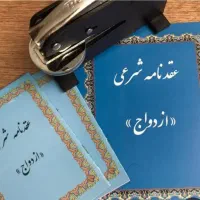 عقدنامه شرعی
«ازدواج»
عقدنامه شرعی
«ازدواج»